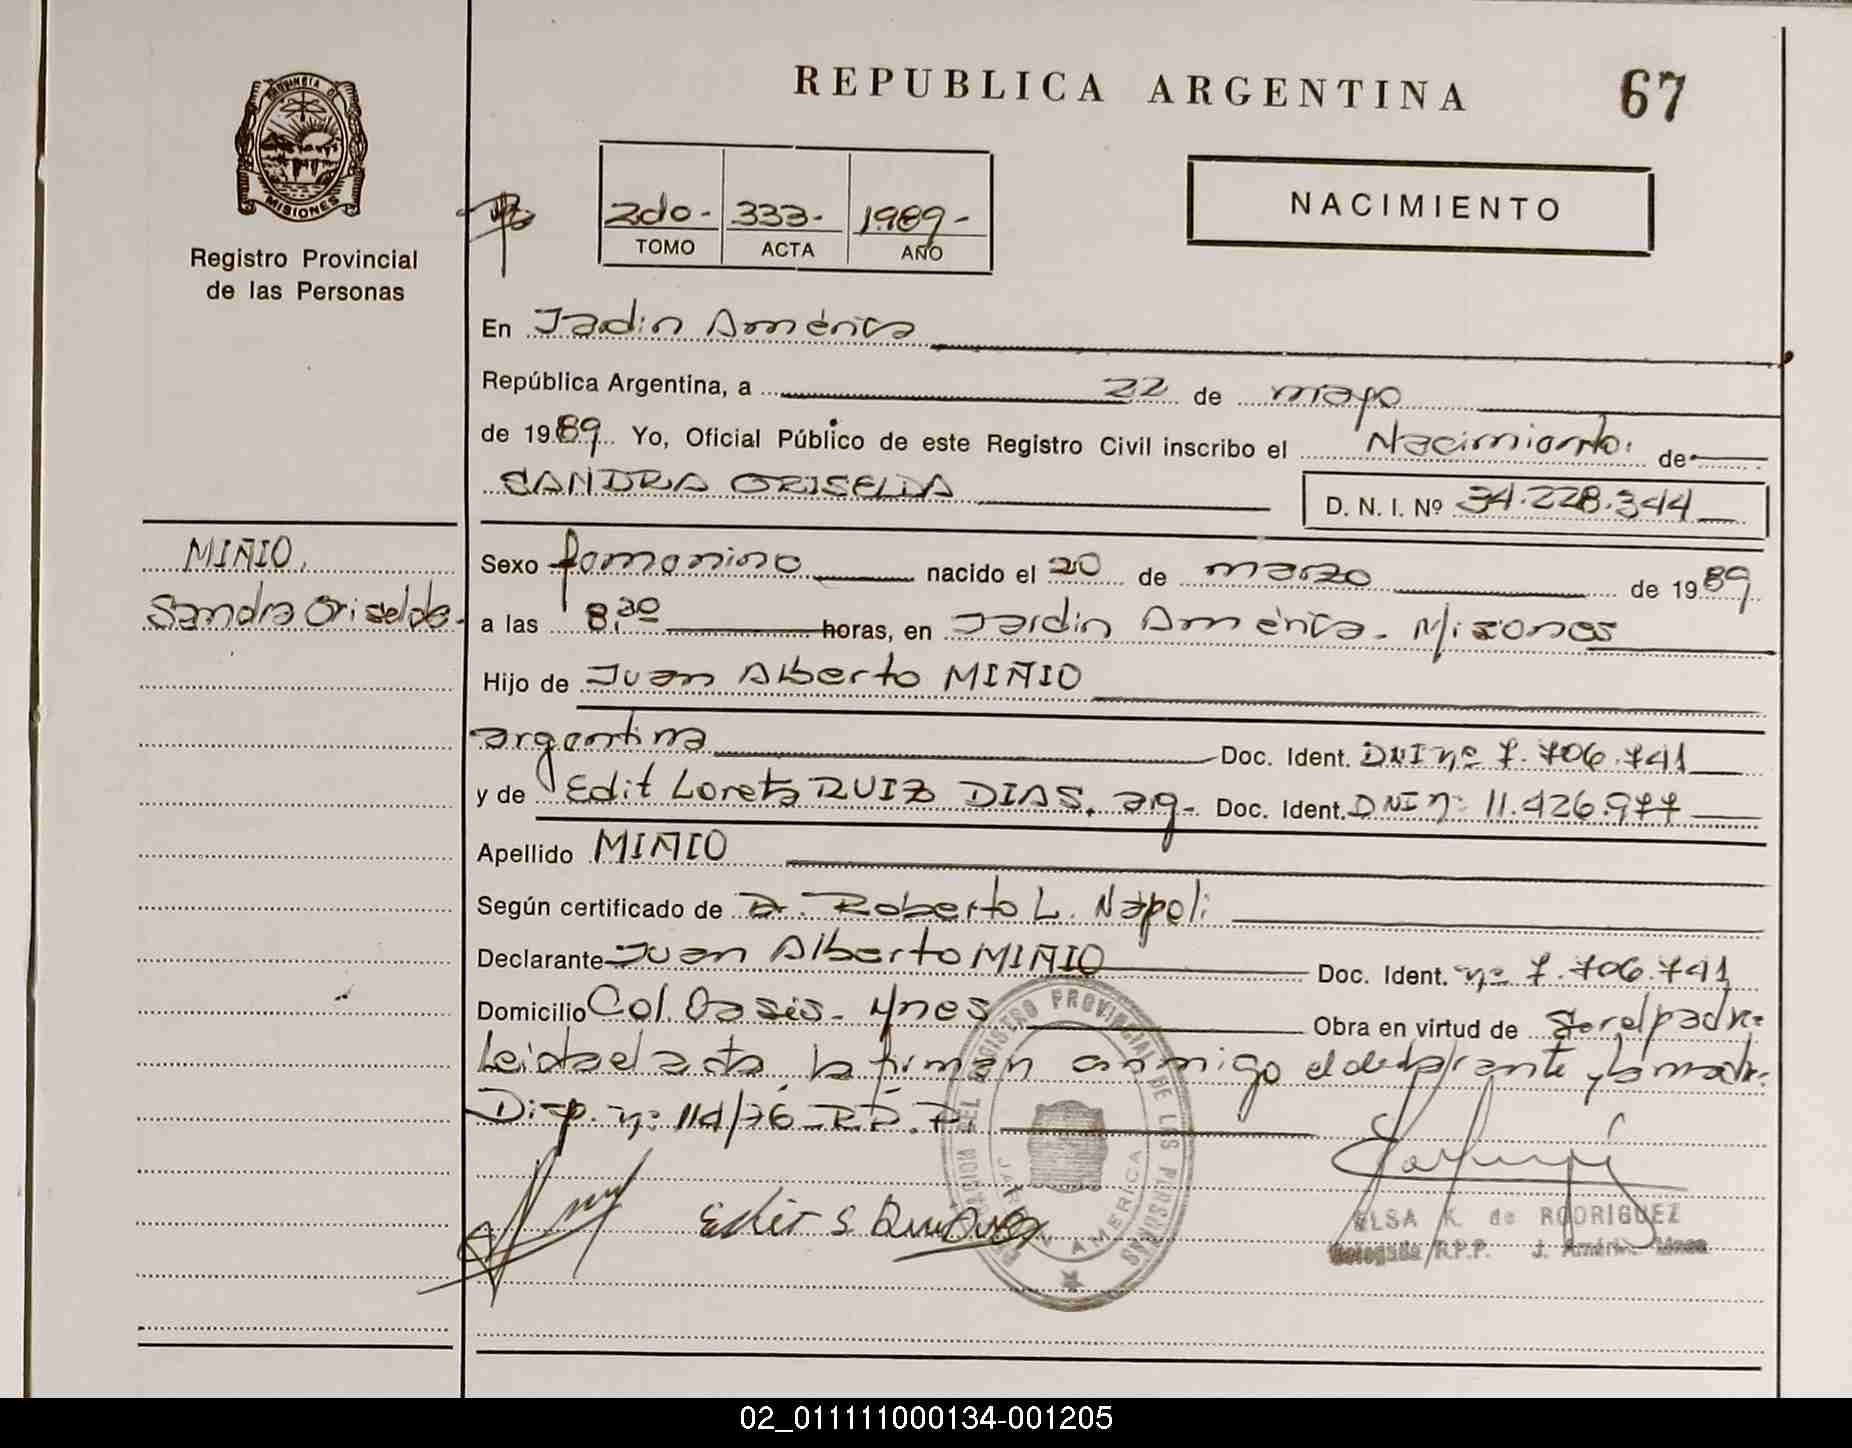 REPUBLICA ARGENTINA
67
PROVINCIA DE
MISIONES
Registro Provincial
de las Personas
2do.- 333.- 1989.-
TOMO ACTA AÑO
NACIMIENTO
En Jadin América
República Argentina, a 22 de mayo
de 1989. Yo, Oficial Público de este Registro Civil inscribo el Nacimiento: de
SANDRA GRISELDA
D. N. I. Nº 34.228.344
MIÑIO,
Sandra Griselda.
Sexo femenino nacido el 20 de marzo de 1989
a las 8,30 horas, en Jardin América. Misiones
Hijo de Juan Alberto MIÑIO
argentina Doc. Ident. DNI nº 7.706.741
y de Edit Loreta RUIZ DIAS. arg- Doc. Ident. DNI nº 11.426.977
Apellido MIÑIO
Según certificado de Dr. Roberto L. Nápoli
Declarante Juan Alberto MIÑIO Doc. Ident. nº 7.706.741
Domicilio Col. Oasis. Mnes Obra en virtud de Ser el padre
Leida el acta, la firman conmigo el declarante y la madre
Disp. nº 114/76 R.P.P.
REGISTRO PROVINCIAL DE LAS PERSONAS
JARDIN AMERICA
ELSA K. de RODRIGUEZ
Delegada R.P.P. J. América Mnes
02_011111000134-001205